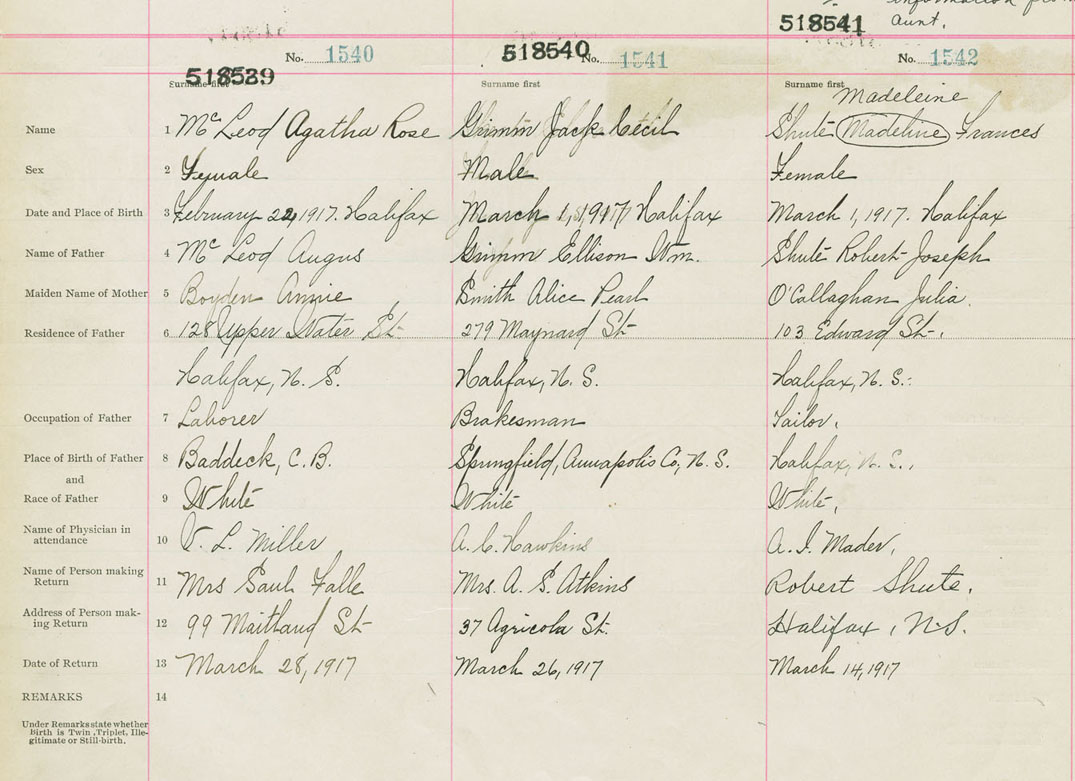 information from
518541 aunt.
518539 No. 1540 518540 No. 1541 No. 1542
Surname first Surname first Surname first
Madeleine
Name 1 McLeod Agatha Rose Grimm Jack Cecil Shute Madeline Frances
Sex 2 Female Male Female
Date and Place of Birth 3 February 22, 1917. Halifax March 1, 1917 Halifax March 1, 1917. Halifax
Name of Father 4 McLeod Angus Grimm Ellison Wm. Shute Robert Joseph
Maiden Name of Mother 5 Boyden Annie Smith Alice Pearl O'Callaghan Julia.
Residence of Father 6 128 Upper Water St 279 Maynard St 103 Edward St.
Halifax, N. S. Halifax, N. S. Halifax, N. S.
Occupation of Father 7 Laborer Brakesman Sailor.
Place of Birth of Father 8 Baddeck, C. B. Springfield, Annapolis Co, N. S. Halifax, N. S.,
and
Race of Father 9 White White White,
Name of Physician in
attendance 10 V. L. Miller A. C. Hawkins A. I. Mader,
Name of Person making
Return 11 Mrs Paul Falle Mrs. A. S. Atkins Robert Shute.
Address of Person mak-
ing Return 12 99 Maitland St 37 Agricola St. Halifax, N.S.
Date of Return 13 March 28, 1917 March 26, 1917 March 14, 1917
REMARKS 14
Under Remarks state whether
Birth is Twin, Triplet, Ille-
gitimate or Still-birth.